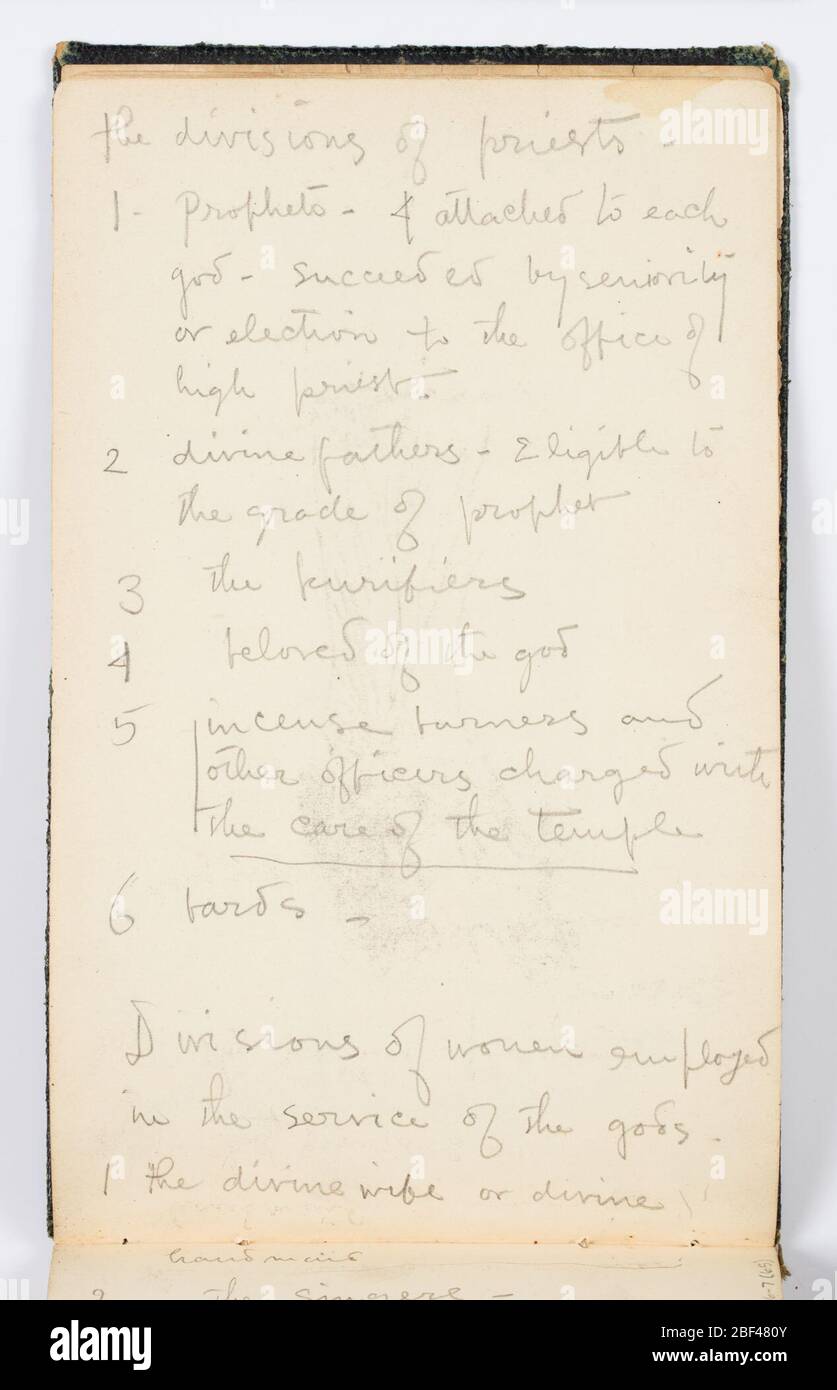 the divisions of priests -
1 - Prophets - 4 attached to each
god - succeeded by seniority
or election to the office of
high priest.
2 divine fathers - Eligible to
the grade of prophet
3 the purifiers
4 beloved of the god
5 incense burners and
other officers charged with
the care of the temple
6 bards -
Divisions of women employed
in the service of the gods.
1 the divine wife or divine
handmaid
2 the singers -
alamy
Image ID: 2BF480Y
www.alamy.com